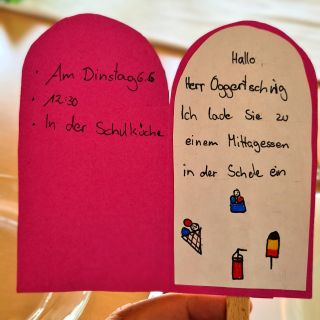 · Am Dinstag 6.6
· 12:30
· In der Schulküche
Hallo
Herr Oggertschnig
Ich lade Sie zu
einem Mittagessen
in der Schule ein